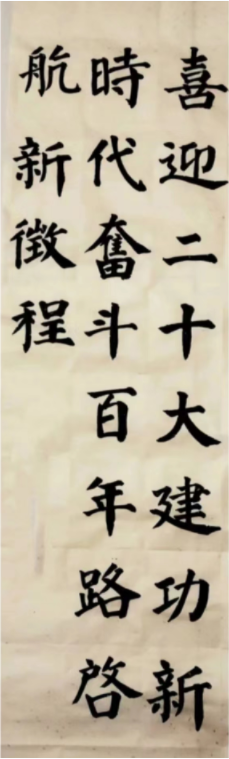 喜迎二十大建功新
時代奮斗百年路啓
航新徵程